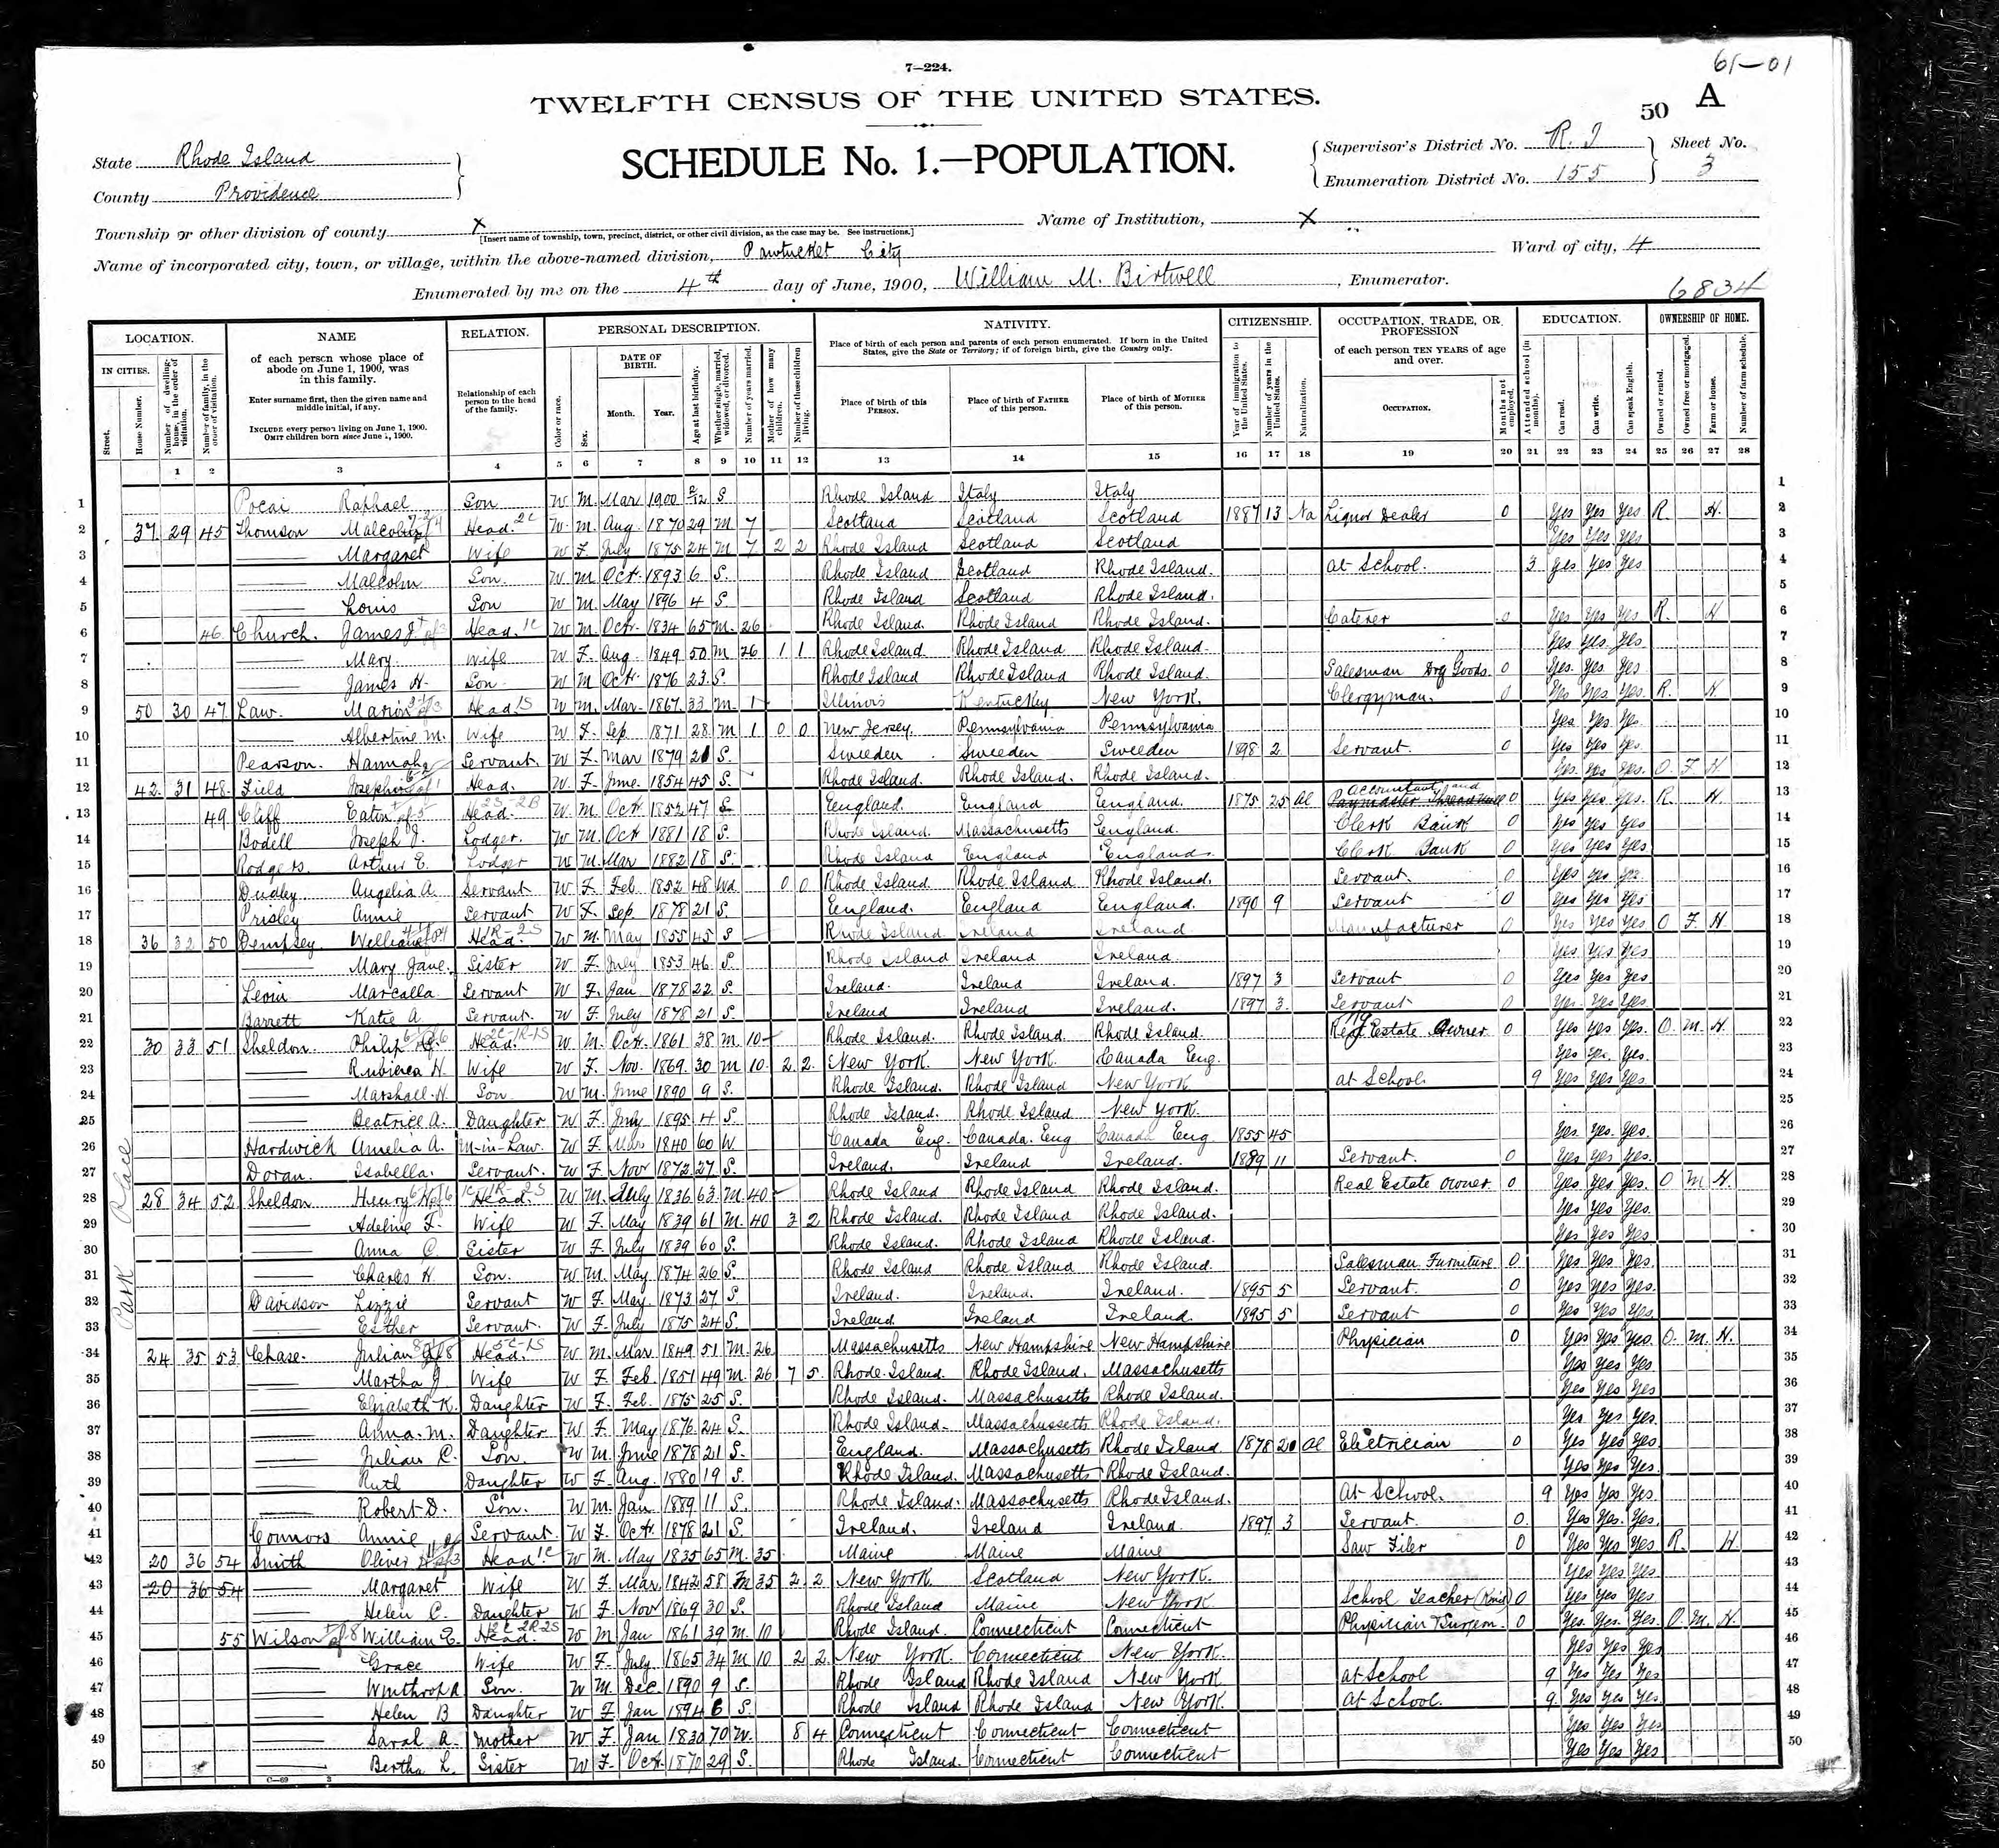 7—224.
61—01
TWELFTH CENSUS OF THE UNITED STATES.
50 A
State Rhode Island
County Providence
SCHEDULE No. 1.—POPULATION.
Supervisor's District No. R. I
Enumeration District No. 155
Sheet No. 3
Township or other division of county X
[Insert name of township, town, precinct, district, or other civil division, as the case may be. See instructions.]
Name of Institution, X
Name of incorporated city, town, or village, within the above-named division, Pawtucket City
Ward of city, 4
Enumerated by me on the 4th day of June, 1900, William M. Birtwell, Enumerator.
6834
LOCATION. NAME RELATION. PERSONAL DESCRIPTION. NATIVITY. CITIZENSHIP. OCCUPATION, TRADE, OR PROFESSION EDUCATION. OWNERSHIP OF HOME.
IN CITIES.
Street.
House Number.
Number of dwelling-house, in the order of visitation.
Number of family, in the order of visitation.
of each person whose place of abode on June 1, 1900, was in this family.
Enter surname first, then the given name and middle initial, if any.
INCLUDE every person living on June 1, 1900.
OMIT children born since June 1, 1900.
Relationship of each person to the head of the family.
Color or race.
Sex.
DATE OF BIRTH.
Month. Year.
Age at last birthday.
Whether single, married, widowed, or divorced.
Number of years married.
Mother of how many children.
Number of these children living.
Place of birth of each person and parents of each person enumerated. If born in the United States, give the State or Territory; if of foreign birth, give the Country only.
Place of birth of this PERSON.
Place of birth of FATHER of this person.
Place of birth of MOTHER of this person.
Year of immigration to the United States.
Number of years in the United States.
Naturalization.
of each person TEN YEARS of age and over.
OCCUPATION.
Months not employed.
Attended school (in months).
Can read.
Can write.
Can speak English.
Owned or rented.
Owned free or mortgaged.
Farm or house.
Number of farm schedule.
1 2 3 4 5 6 7 8 9 10 11 12 13 14 15 16 17 18 19 20 21 22 23 24 25 26 27 28
Park Place
1 Pocai Raphael Son W M Mar 1900 2/12 S Rhode Island Italy Italy 1
2 37 29 45 Thomson Malcolm Head W M Aug 1870 29 M 7 Scotland Scotland Scotland 1887 13 Na Liquor Dealer 0 Yes Yes Yes R. H. 2
3 Margaret Wife W F July 1875 24 M 7 2 2 Rhode Island Scotland Scotland Yes Yes Yes 3
4 Malcolm Son. W M Oct 1893 6 S. Rhode Island Scotland Rhode Island. at School. 3 Yes Yes Yes 4
5 Louis Son W M May 1896 4 S. Rhode Island Scotland Rhode Island. 5
6 46 Church. James Head. W M. Oct. 1834 65 M. 26 Rhode Island. Rhode Island Rhode Island. Caterer 0 Yes Yes Yes R. H 6
7 Mary. Wife W F. Aug 1849 50 M 26 1 1 Rhode Island. Rhode Island Rhode Island. Yes Yes Yes. 7
8 James H. Son W M Oct. 1876 23 S. Rhode Island Rhode Island Rhode Island. Salesman Dry Goods. 0 Yes Yes Yes 8
9 50 30 47 Law. Marion Head W M. Mar. 1867 33 M. 1 Illinois Kentucky New York. Clergyman. 0 Yes Yes Yes. R. H 9
10 Albertine M. Wife W F. Sep 1871 28 M 1 0 0 New Jersey. Pennsylvania Pennsylvania Yes Yes Yes 10
11 Pearson. Hannah Servant. W F. Mar 1879 21 S. Sweeden Sweeden Sweeden 1898 2 Servant. 0 Yes Yes Yes. 11
12 42 31 48 Field Josephine Head. W F. June. 1854 45 S. Rhode Island. Rhode Island. Rhode Island. Yes. Yes Yes. O. F. H. 12
13 49 Cliff Eaton Head. W. M. Oct. 1852 47 S England. England England. 1875 25 Al Accountant 0 Yes Yes Yes. R. H. 13
14 Bodell Joseph J. Lodger. W M. Oct 1881 18 S. Rhode Island. Massachusetts England. Clerk Bank 0 Yes Yes Yes 14
15 Rodgers. Arthur E. Lodger W M. Mar 1882 18 S. Rhode Island England England. Clerk Bank 0 Yes Yes Yes 15
16 Dudley. Angelia A. Servant W F. Feb 1852 48 Wd 0 0 Rhode Island Rhode Island Rhode Island. Servant. 0 Yes Yes Yes 16
17 Prisley Annie Servant W F. Sep 1878 21 S. England. England England. 1890 9 Servant 0 Yes Yes Yes 17
18 36 32 50 Dempsey. William Head. W M. May 1855 45 S Rhode Island Ireland Ireland. Manufacturer 0 Yes Yes Yes O F. H. 18
19 Mary Jane. Sister W F. July 1853 46 S. Rhode Island Ireland Ireland. Yes Yes Yes 19
20 Marcalla Servant W F. Jan 1878 22 S. Ireland. Ireland Ireland. 1897 3 Servant 0 Yes Yes Yes 20
21 Barrett Katie A Servant. W F. July 1878 21 S. Ireland Ireland Ireland. 1897 3 Servant 0 Yes Yes Yes. 21
22 30 33 51 Sheldon. Philip Head. W M. Oct. 1861 38 M 10 Rhode Island. Rhode Island Rhode Island. Real Estate Owner 0 Yes Yes Yes. O. M. H. 22
23 H. Wife W F. Nov. 1869 30 M 10 2 2 New York. New York. Canada Eng. Yes Yes Yes. 23
24 Marshall H. Son W M. June 1890 9 S. Rhode Island. Rhode Island New York at School. 9 Yes Yes Yes. 24
25 Beatrice A. Daughter W F. July 1895 4 S. Rhode Island. Rhode Island New York. 25
26 Hardwick Amelia A. M-in-Law. W F. Mar 1840 60 W Canada Eng. Canada. Eng Canada Eng 1855 45 Yes. Yes. Yes. 26
27 Doran. Isabella. Servant. W F. Nov 1872 27 S. Ireland. Ireland Ireland. 1889 11 Servant. 0 Yes Yes Yes. 27
28 28 34 52 Sheldon Henry Head. W M. July 1836 63 M. 40 Rhode Island Rhode Island Rhode Island. Real Estate Owner. 0 Yes Yes Yes. O M H. 28
29 Adeline F. Wife W F. May 1839 61 M. 40 3 2 Rhode Island. Rhode Island Rhode Island. Yes Yes Yes. 29
30 Anna C. Sister W F. July 1839 60 S. Rhode Island. Rhode Island Rhode Island. Yes Yes Yes 30
31 Charles H. Son. W M. May 1874 26 S. Rhode Island Rhode Island Rhode Island. Salesman Furniture 0 Yes Yes Yes. 31
32 Davidson Lizzie Servant W F. May. 1873 27 S Ireland. Ireland. Ireland. 1895 5 Servant 0 Yes Yes Yes. 32
33 Esther Servant. W F. July 1875 24 S. Ireland Ireland Ireland. 1895 5 Servant 0 Yes Yes Yes. 33
34 24 35 53 Chase. Julian Head. W M. Mar. 1849 51 M. 26 Massachusetts New Hampshire New Hampshire Physician 0 Yes Yes Yes. O. M. H. 34
35 Martha J Wife W F. Feb. 1851 49 M. 26 7 5 Rhode Island. Rhode Island. Massachusetts Yes Yes Yes 35
36 Elizabeth K. Daughter W F. Feb. 1875 25 S. Rhode Island. Massachusetts Rhode Island. Yes Yes Yes 36
37 Anna. M. Daughter W F. May 1876 24 S. Rhode Island. Massachussetts Rhode Island. Yes Yes Yes. 37
38 Julian C. Son. W M. June 1878 21 S. England. Massachusetts Rhode Island 1878 20 Al Electrician 0 Yes Yes Yes 38
39 Ruth Daughter W F. Aug. 1880 19 S. Rhode Island. Massachusetts Rhode Island. Yes Yes Yes. 39
40 Robert D. Son. W M. Jan 1889 11 S. Rhode Island. Massachusetts Rhode Island. At School. 9 Yes Yes Yes 40
41 Connors Annie Servant. W F. Oct. 1878 21 S. Ireland. Ireland Ireland. 1897 3 Servant. 0. Yes Yes. Yes. 41
42 20 36 54 Smith Oliver Head W M. May 1835 65 M. 35 Maine Maine Maine Saw Filer 0 Yes Yes Yes R. H. 42
43 20 36 54 Margaret Wife W F. Mar 1842 58 M 35 2 2 New York. Scotland New York. Yes Yes Yes. 43
44 Helen C. Daughter W F. Nov 1869 30 S. Rhode Island Maine New York School Teacher 0 Yes Yes Yes 44
45 55 Wilson William E. Head. W M Jan 1861 39 M. 10 Rhode Island. Connecticut Connecticut Physician Surgeon. 0 Yes. Yes. Yes. O. M. H. 45
46 Grace Wife W F. July 1865 34 M 10 2 2 New York. Connecticut New York. Yes Yes Yes 46
47 Winthrop A Son. W M. Dec. 1890 9 S. Rhode Island Rhode Island New York. at School 9 Yes Yes Yes 47
48 Helen B Daughter W F Jan 1894 6 S. Rhode Island Rhode Island New York. at School. 9 Yes Yes Yes. 48
49 Sarah A. Mother W F. Jan 1830 70 W. 8 4 Connecticut Connecticut Connecticut Yes Yes Yes 49
50 Bertha L. Sister W F. Oct. 1870 29 S. Rhode Island. Connecticut Connecticut Yes Yes Yes 50